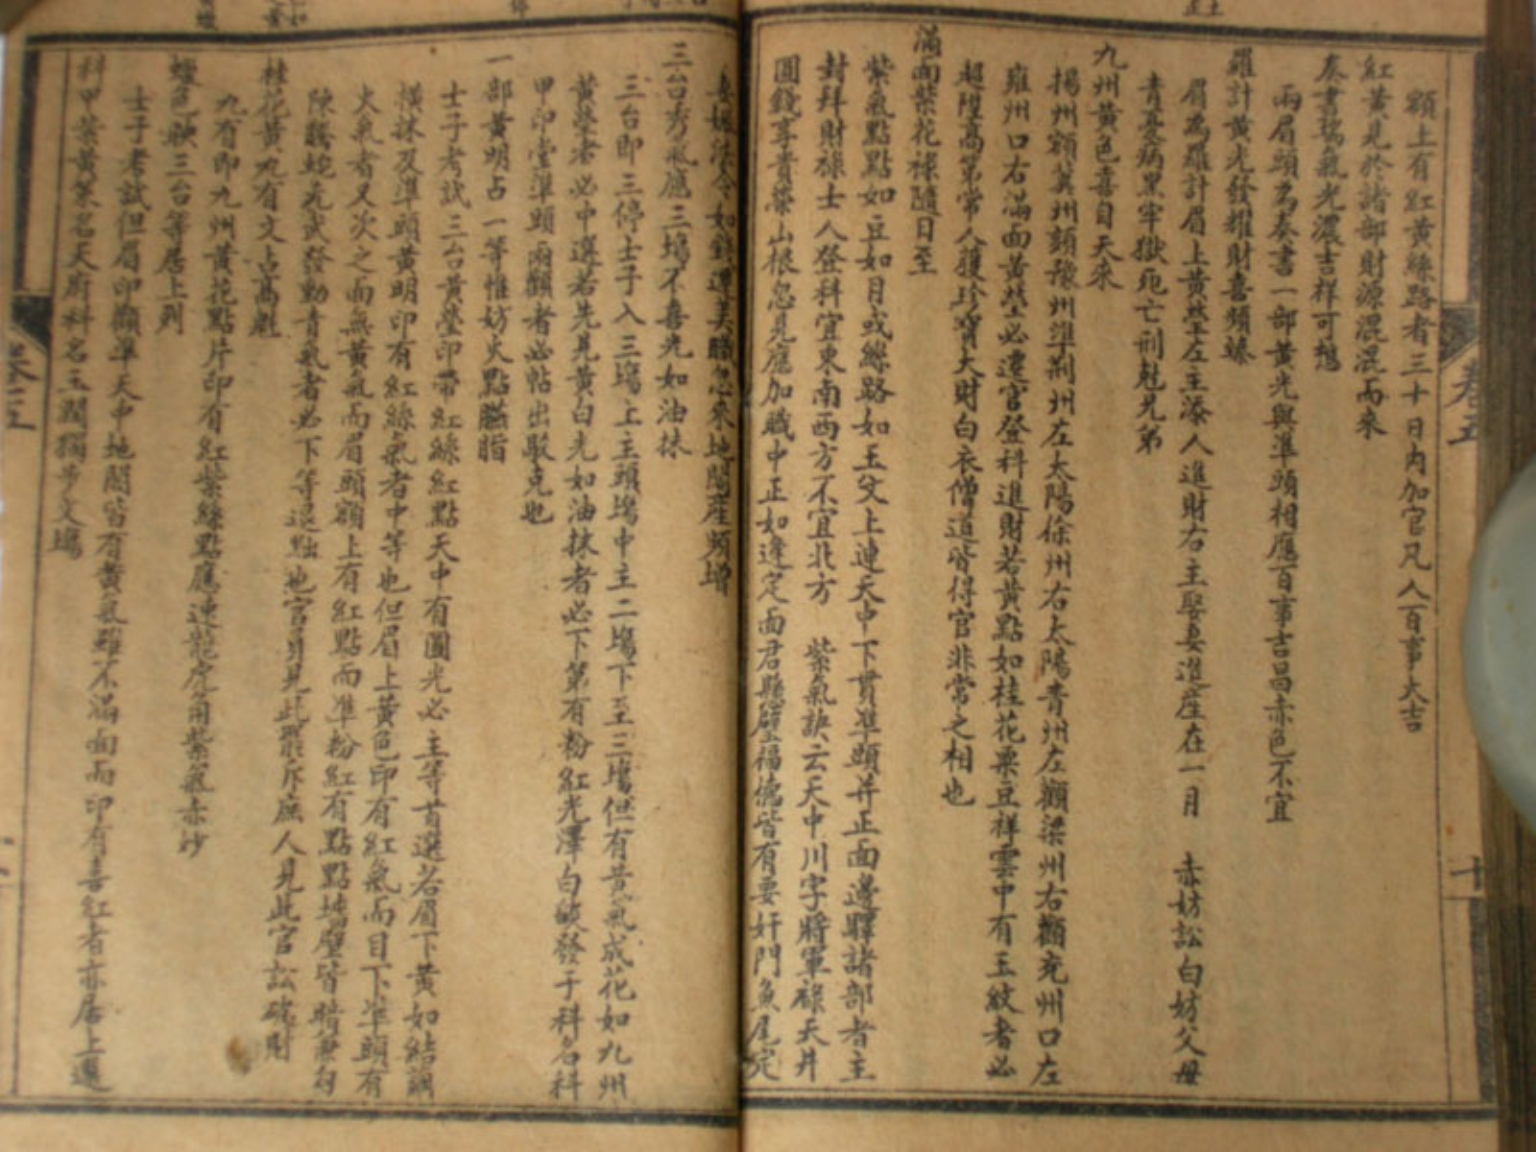 額上有紅黃絲路者三十日內加官凡人百事大吉
紅黃見於諸部財源混混而來
奏書瑞氣光濃吉祥可想
兩眉頭名奏書一部黃光與準頭相應百事吉昌赤色不宜
羅計黃光發耀財喜頻臻
眉為羅計眉上黃瑩左主添人進財右主娶妻進産在一月 赤妨訟白妨父母
青憂病黑牢獄死亡刑尅兄弟
九州黃色喜自天來
揚州額冀州頦豫州準荊州左太陽徐州右太陽青州左顴梁州右顴兖州口左
雍州口右滿面黃瑩必遷官登科進財若黃點如桂花粟豆祥雲中有玉紋者必
超陞高第常人獲珍寶大財白衣僧道皆得官非常之相也
滿面紫花祿隨日至
紫氣點點如豆如月或絲路如玉文上連天中下貫準頭并正面邊驛諸部者主
封拜財祿士人登科宜東南西方不宜北方 紫氣訣云天中川字將軍祿天井
圓錢享貴榮山根忽見應加職中正如逢定面君懸壁福德皆有要奸門魚尾完
妻姻法令如錢遭美職忽來地閣産頻增
三台秀氣應三塲不喜光如油抹
三台即三停士子入三塲上主頭塲中主二塲下主三塲但有黃氣成花如九州
黃瑩者必中選若先見黃白光如油抹者必下第有粉紅光澤白欲發于科名科
甲印堂準頭兩顴者必帖出駁克也
一部黃明占一等惟妨火點臙脂
士子考試三台黃瑩印帶紅絲紅點天中有圓光必主等首選若眉下黃如結綱
橫抹及準頭黃明印有紅絲氣者中等也但眉上黃色印有紅氣而目下準頭有
火氣者又次之面無黃氣而眉頭額上有紅點而準粉紅有點點墙壁皆暗兼勾
陳騰蛇玄武發動青氣者必下等退黜也官員見此罷斥庶人見此官訟破財
桂花黃九有文占高魁
九有即九州黃花點片印有紅紫絲點應連龍虎角紫氣赤沙
蠟色映三台等居上列
士子考試但眉印顴準天中地閣皆有黃氣雖不滿面而印有喜紅者亦居上選
科甲紫黃策名天府科名玉潤獨步文塲
卷五
十
卷五